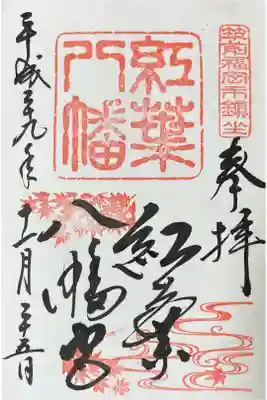 筑前福岡市鎮坐
奉拝
紅葉
八幡
紅葉
八幡宮
平成二九年十一月二十五日